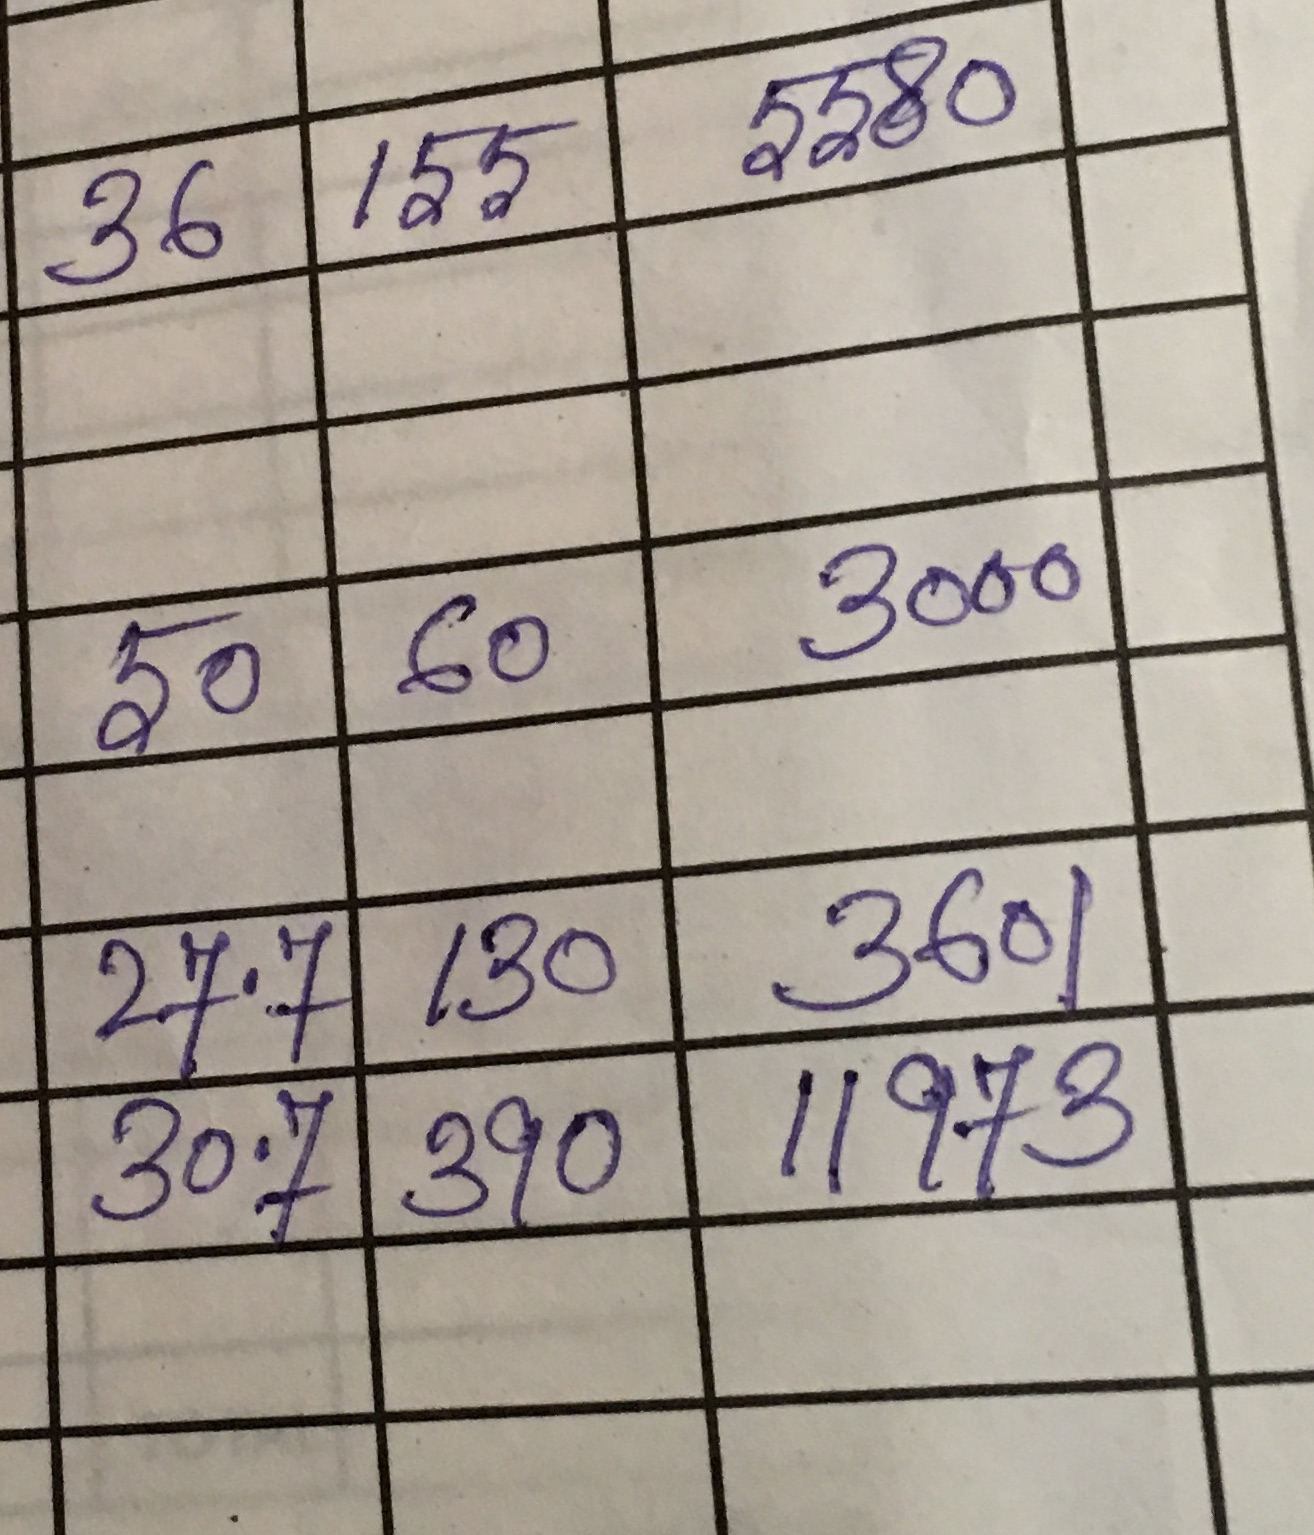 36 155 5580
50 60 3000
27.7 130 3601
30.7 390 11973